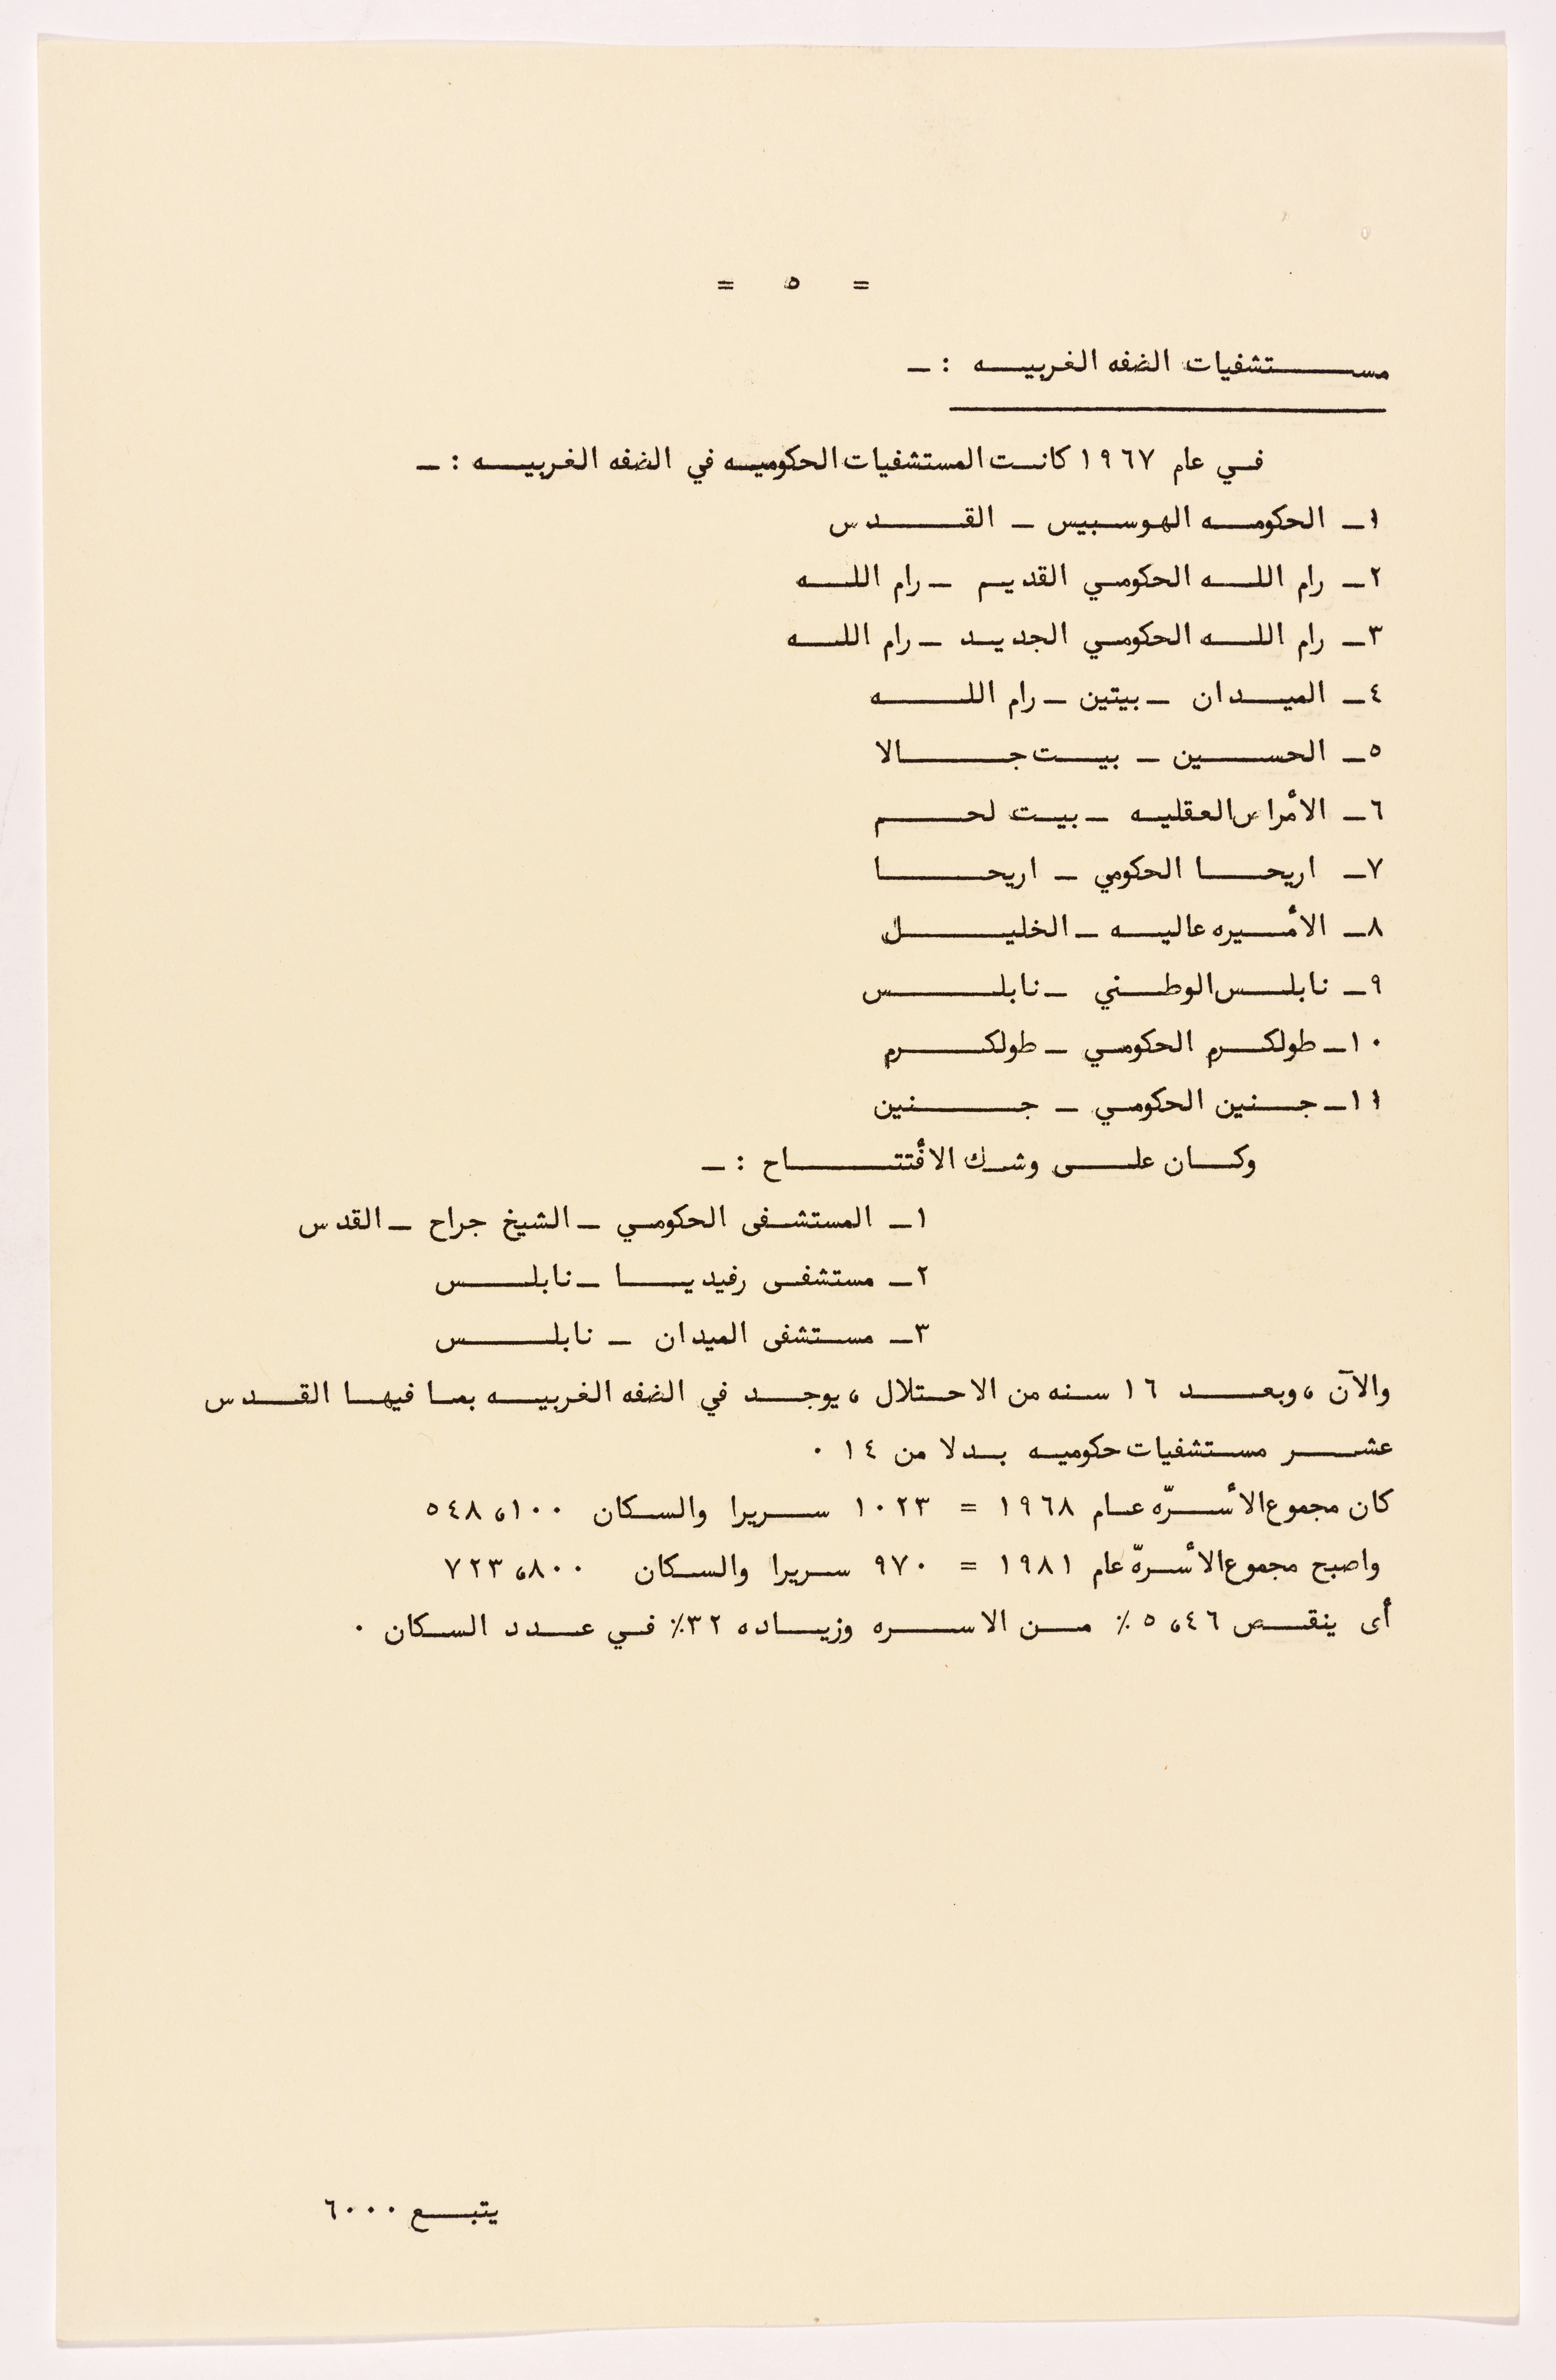 = ٥ =
مستشفيات الضفه الغربيه : ـ
في عام ١٩٦٧ كانت المستشفيات الحكوميه في الضفه الغربيه : ـ
١ـ الحكومه الهوسبيس ـ القدس
٢ـ رام الله الحكومي القديم ـ رام الله
٣ـ رام الله الحكومي الجديد ـ رام الله
٤ـ الميدان ـ بيتين ـ رام الله
٥ـ الحسين ـ بيت جالا
٦ـ الأمراض العقليه ـ بيت لحم
٧ـ اريحا الحكومي ـ اريحا
٨ـ الأميره عاليه ـ الخليل
٩ـ نابلس الوطني ـ نابلس
١٠ـ طولكرم الحكومي ـ طولكرم
١١ـ جنين الحكومي ـ جنين
وكان على وشك الافتتاح : ـ
١ـ المستشفى الحكومي ـ الشيخ جراح ـ القدس
٢ـ مستشفى رفيديا ـ نابلس
٣ـ مستشفى الميدان ـ نابلس
والآن ، وبعد ١٦ سنه من الاحتلال ، يوجد في الضفه الغربيه بما فيها القدس
عشر مستشفيات حكوميه بدلا من ١٤ .
كان مجموع الأسرّه عام ١٩٦٨ = ١٠٢٣ سريرا والسكان ٥٤٨،١٠٠
واصبح مجموع الأسرّه عام ١٩٨١ = ٩٧٠ سريرا والسكان ٧٢٣،٨٠٠
أى ينقص ٥،٤٦ ٪ من الاسره وزياده ٣٢٪ في عدد السكان .
يتبع ٠٠٠ ٦